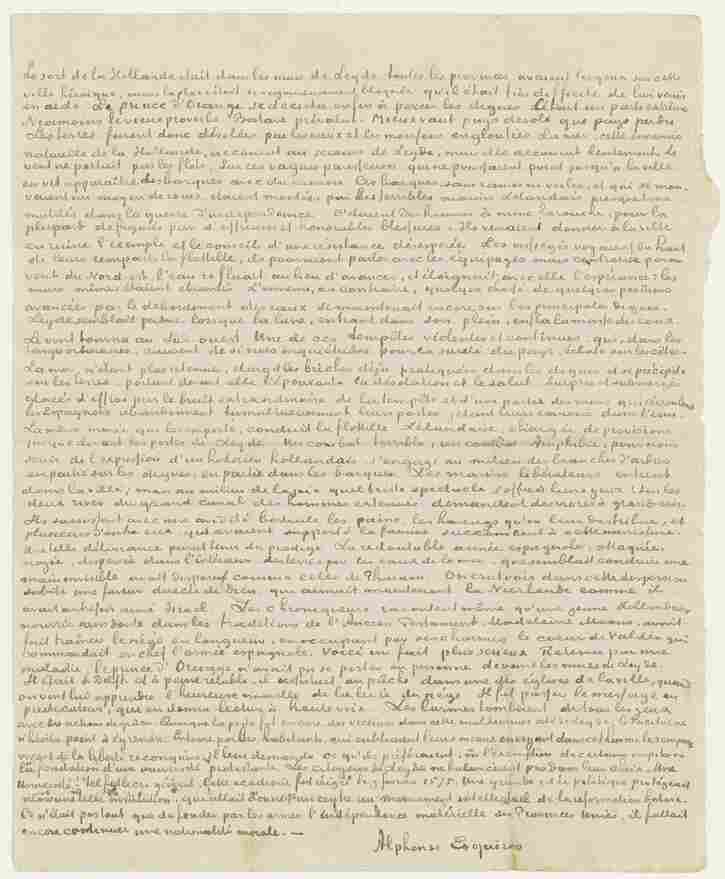 Le sort de la Hollande était dans les murs de Leyde toutes les provinces avaient les yeux sur cette
ville héroïque, mais la place était si rigoureusement bloquée qu'il était très difficile de lui venir
en aide. Le prince d'Orange se décida enfin à percer les digues. C'était un parti extrême
Néanmoins le vieux proverbe Batave prévalut. Mieux vaut pays désolé que pays perdu.
Les terres furent donc désolées par les eaux et les moissons englouties La mer, cette ennemie
naturelle de la Hollande, accourut au secours de Leyde, mais elle accourut lentement, le
vent ne portait pas les flots. Sur ces vagues paresseuses qui ne pénétraient point jusqu'à la ville
on vit apparaître des barques avec du canon Ces barques sans rames ni voiles, et qui se mou-
vaient au moyen de roues, étaient montées par les terribles marins zélandais presque tous
mutilés dans la guerre d'indépendance. C'étaient des hommes à mine farouche, pour la
plupart défigurés par d'affreuses et honorables blessures. Ils venaient donner à la ville
en ruine l'exemple et le conseil d'une résistance désespérée Les assiégés voyaient du haut
de leurs remparts la flottille, ils pouvaient parler avec les équipages mais
vent du Nord est l'eau refluait au lieu d'avancer, et éloignait avec elle l'espérance: les
murs mêmes étaient ébranlés L'ennemi, au contraire, quoique chassé de quelques positions
avancées par le débordement des eaux se maintenait encore sur les principales digues.
Leyde semblait perdue lorsque la lune, entrant dans son plein, enfla la masse des eaux.
Le vent tourna au Sud-ouest Une de ces tempêtes violentes et continues qui, dans les
temps ordinaires, causent de si vives inquiétudes pour la sûreté du pays, éclata sur les côtes.
La mer, n'étant plus retenue, élargit les brèches déjà pratiquées dans les digues et se précipite
sur les terres, portant devant elle l'épouvante la désolation et le salut. Surpris et submergés
glacés d'effroi par le bruit extraordinaire de la tempête et d'une partie des murs qui s'écroulent
les Espagnols abandonnent tumultueusement leurs postes, jetant leurs canons dans l'eau.
La même marée qui les emporte, conduit la flottille Zélandaise, chargée de provisions
jusque devant les portes de Leyde. Un combat terrible, un combat amphibie, pour nous
servir de l'expression d'un historien hollandais s'engage au milieu des branches d'arbres
en partie sur les digues, en partie dans les barques. Les marins libérateurs entrent
dans la ville; mais au milieu de la joie quel triste spectacle s'offre à leurs yeux Sur les
deux rives du grand canal des hommes exténués demandent des vivres à grands cris.
Ils saisissent avec une avidité bestiale les pains, les harengs qu'on leur distribue, et
plusieurs d'entre eux, qui avaient supporté la famine succombent à cette nourriture.
Une telle délivrance parut tenir du prodige La redoutable armée espagnole, attaquée,
noyée, dispersée dans l'intérieur des terres par les eaux de la mer, que semblait conduire une
main invisible avait disparu comme celle de Pharaon. On crut voir dans cette dispersion
subite une faveur directe de Dieu, qui aimait maintenant la Néerlande comme il
avait autrefois aimé Israël. Les chroniqueurs racontent même qu'une jeune Hollandaise
nourrie sans doute dans les traditions de l'Ancien Testament, Madeleine Moons, avait
fait traîner le siège en longueur, en occupant par ses charmes le coeur de Valdès qui
commandait en chef l'armée espagnole. Voici un fait plus sérieux Retenu par une
maladie, le prince d'Orange n'avait pu se porter en personne devant les murs de Leyde.
Il était à Delft et à peine rétabli, il assistait au prêche dans une des églises de la ville, quand
on vint lui apprendre l'heureuse nouvelle de la levée du siège Il fit passer le message au
prédicateur, qui en donna lecture à haute voix. Les larmes tombèrent de tous les yeux
avec des actions de grâces Quoique la peste fit encore des victimes dans cette malheureuse cité de Leyde, le Taciturne
n'hésita point à s'y rendre. Entouré par les habitants, qui oubliaient leurs maux en voyant dans cet homme le rempart
vivant de la liberté reconquise, il leur demanda ce qu'ils préféreraient, ou l'exemption de certains impôts ou
la fondation d'une université protestante. Les citoyens de Leyde ne balancèrent pas dans leur choix. Une
Université! Tel fut le cri général. Cette académie fut érigée le 5 février 1575. Une grande idée politique protégeait
cette institution, qui allait donner un centre un monument intellectuel de la réformation batave.
Ce n'était pas tout que de fonder par les armes l'indépendance matérielle des Provinces Unies, il fallait
encore constituer une nationalité morale. —
Alphonse Esquiros